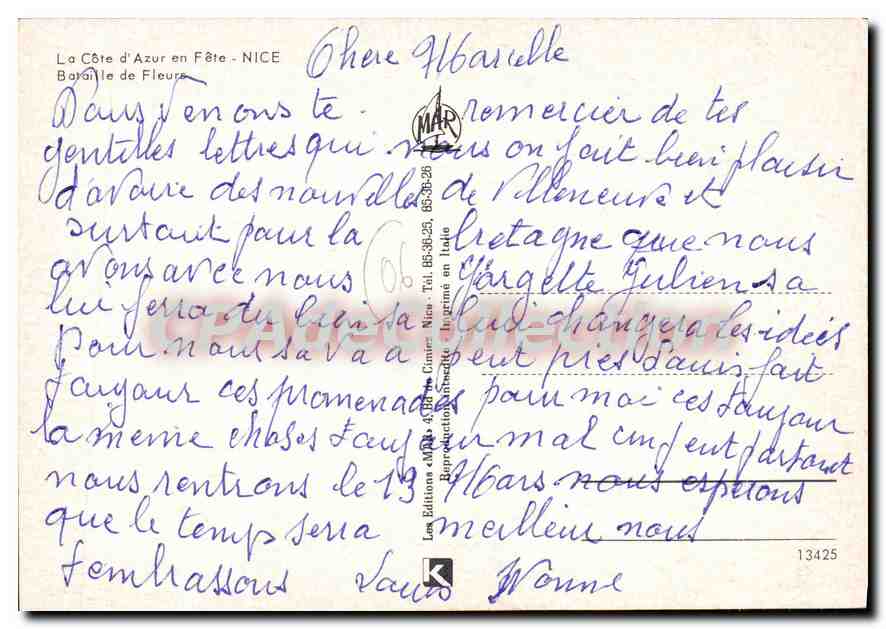 La Côte d'Azur en Fête - NICE
Bataille de Fleurs
Chere Marcelle
Nous Venons te remercier de tes
gentilles lettres qui nous on fait bien plaisir
d'avoire des nouvelles de Villeneuve et
surtout pour la bretagne que nous
avons avec nous Julien sa
lui ferra du bien sa lui changera les idées
pour nous sa va a peut pries Louis fait
toujour ces promenades pour moi ces toujour
la meme choses toujour mal un peut partout
nous rentrons le 13 Mars nous esperons
que le temp serra meilleur nous
t'embrassons Louis Yvonne
06
MAR
Les Editions «MAR» 4, Bd de Cimiez Nice - Tél. 85-36-25, 85-36-26
Reproduction interdite - Imprimé en Italie
K
13425
CPA de Collection